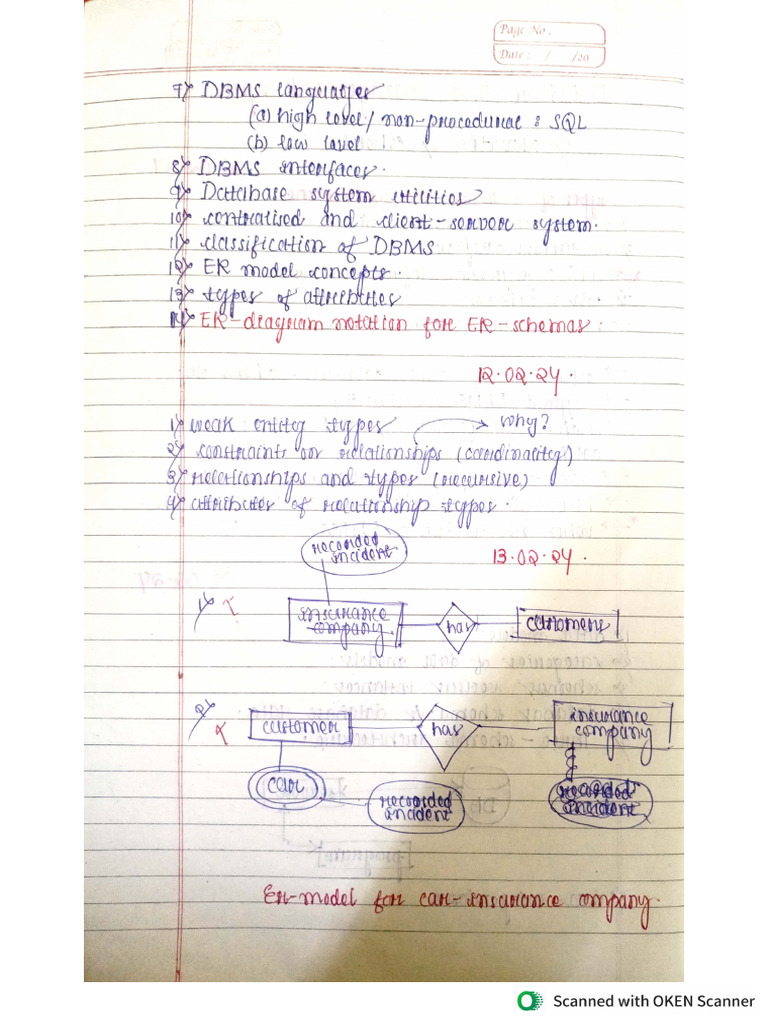 Page No.
Date: / /20
7) DBMS languages
(a) high level / non-procedural : SQL
(b) low level
8) DBMS interfaces.
9) Database system utilities
10) centralised and client-server system.
11) classification of DBMS
12) ER model concepts.
13) types of attributes
14) ER-diagram notation for ER-schemas.
12.02.24.
1) weak entity types
why?
2) constraints on relationships (cardinality)
3) relationships and types (recursive)
4) attributes of relationship types.
recorded
incident
13.02.24.
1) x
insurance
company
has
customers
2) x
customer
has
insurance
company
car
recorded
incident
recorded
incident
ER-model for car-insurance company.
Scanned with OKEN Scanner